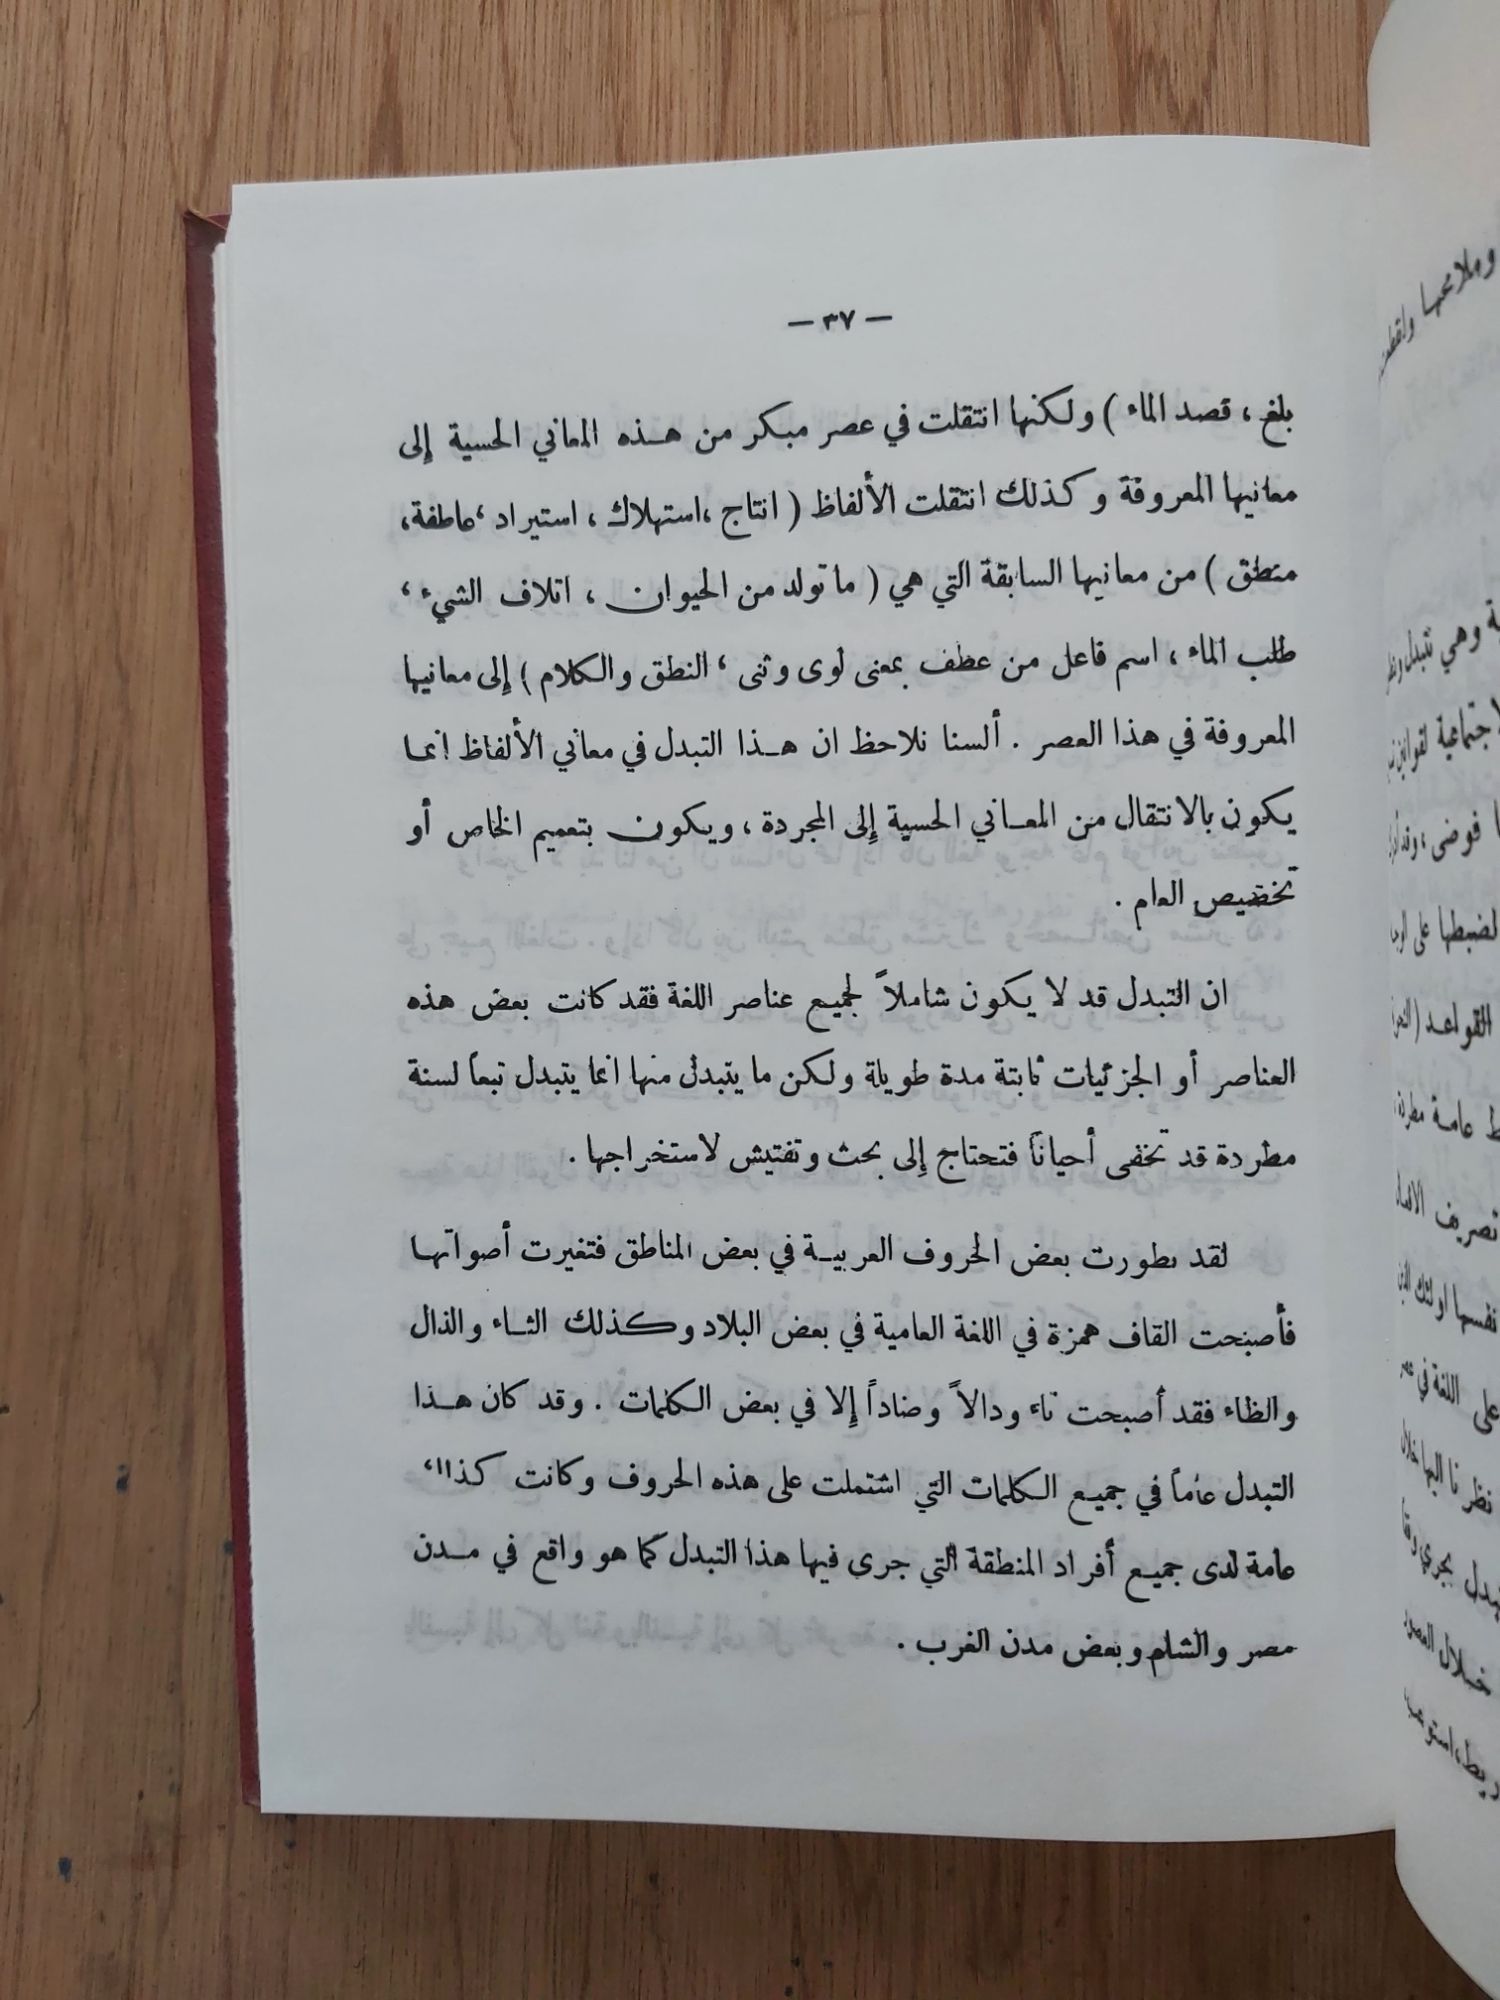 — ٣٧ —
بلغ ، قصد الماء ) ولكنها انتقلت في عصر مبكر من هـذه المعاني الحسية إلى
معانيها المعروفة وكذلك انتقلت الألفاظ ( انتاج ،استهلاك ، استيراد ،عاطفة،
منطق ) من معانيها السابقة التي هي ( ماتولد من الحيوان ، اتلاف الشيء ،
طلب الماء ، اسم فاعل من عطف بمعنى لوى وثنى ، النطق والكلام ) إلى معانيها
المعروفة في هذا العصر . ألسنا نلاحظ ان هـذا التبدل في معاني الألفاظ انما
يكون بالانتقال من المعـاني الحسية إلى المجردة ، ويكون بتعميم الخاص أو
تخصيص العام .
ان التبدل قد لا يكون شاملاً لجميع عناصر اللغة فقد كانت بعض هذه
العناصر أو الجزئيات ثابتة مدة طويلة ولكن ما يتبدل منها انما يتبدل تبعاً لسنة
مطردة قد تخفى أحياناً فتحتاج إلى بحث وتفتيش لاستخراجها .
لقد تطورت بعض الحروف العربيـة في بعض المناطق فتغيرت أصواتهـا
فأصبحت القاف همزة في اللغة العامية في بعض البلاد وكذلك الثـاء والذال
والظاء فقد أصبحت تاء ودالاً وضاداً إلا في بعض الكلمات . وقد كان هـذا
التبدل عاماً في جميـع الكلمات التي اشتملت على هذه الحروف وكانت كذلك
عامة لدى جميـع أفراد المنطقة التي جرى فيها هذا التبدل كما هو واقع في مـدن
مصر والشام وبعض مدن الغرب .
وملامحها
وهي تتبدل
لقوانين
فوضى ،
لضبطها على
القواعد
عامـة مطردة
تصريف
نفسها
على اللغة في
نظرنا اليها خلال
يجري
خـلال